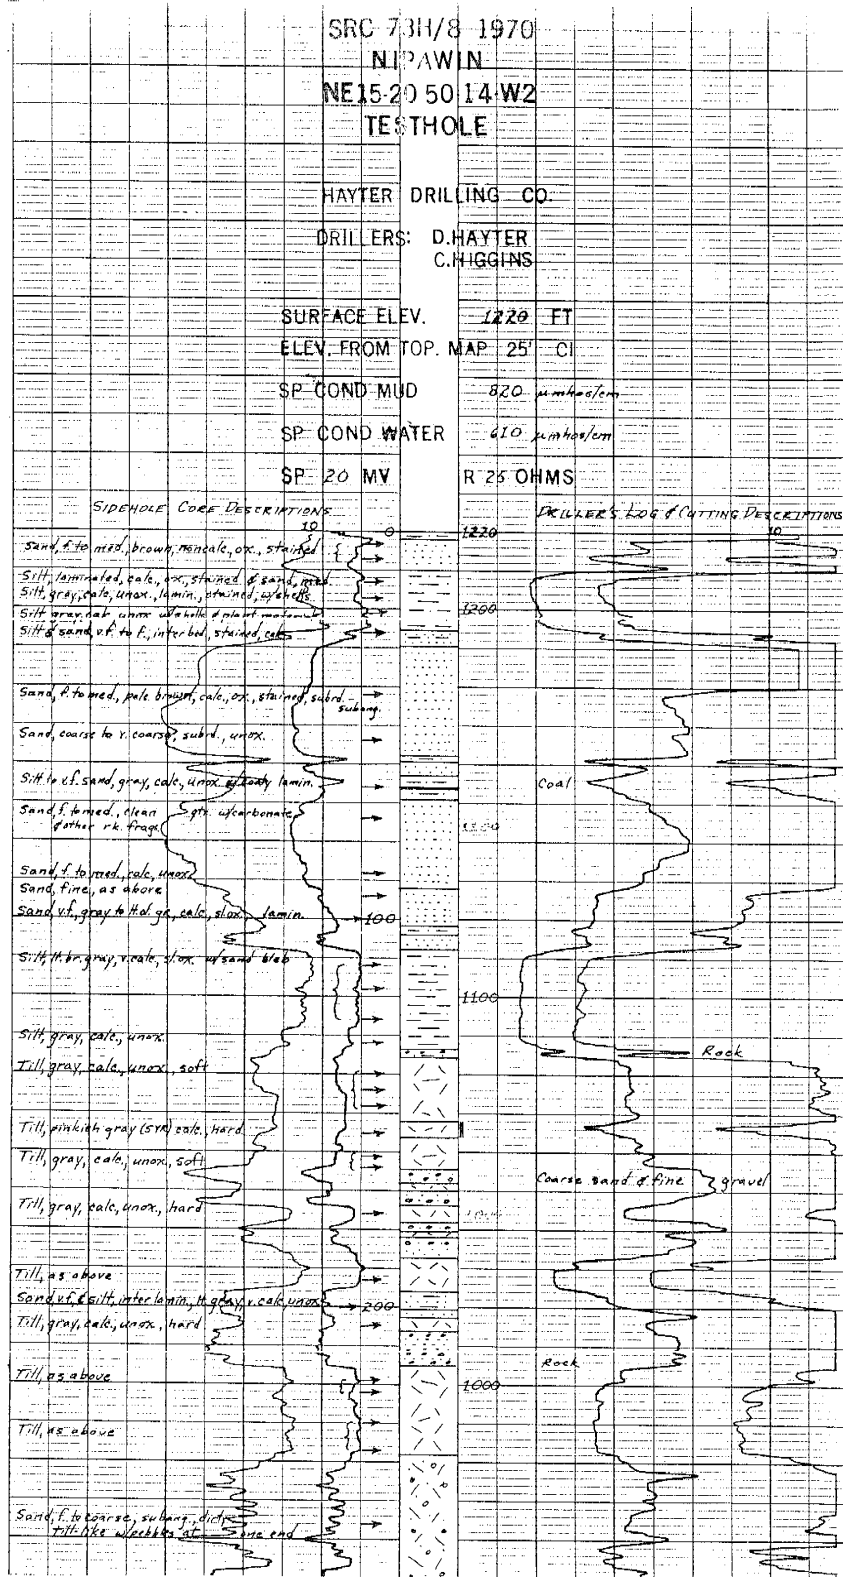 SRC 73H/8 1970
NIPAWIN
NE15-20 50 14 W2
TESTHOLE
HAYTER DRILLING CO.
DRILLERS: D.HAYTER
C.HIGGINS
SURFACE ELEV. 1220 FT
ELEV. FROM TOP. MAP 25' CI
SP COND MUD 820 µmhos/cm
SP COND WATER 610 µmhos/cm
SP 20 MV R 25 OHMS
SIDEHOLE CORE DESCRIPTIONS DRILLER'S LOG & CUTTING DESCRIPTIONS
10 0 1220 10
Sand, f. to med., brown, noncalc., ox., stained
Silt, laminated, calc., ox., stained & sand, med.
Silt, gray, calc, unox., lamin., stained, w/shells
1200
Silt gray, calc unox w/shells & plant material
Silt & sand, v.f. to f., interbed, stained, calc
Sand, f. to med., pale brown, calc., ox., stained, subrd.-
subang.
Sand, coarse to v. coarse, subrd., unox.
Silt to v.f. sand, gray, calc, unox w/coaly lamin. Coal
Sand, f. to med., clean qtz. w/carbonate
& other rk. frags.
Sand, f. to med, calc, unox
Sand, fine, as above
Sand, v.f., gray to lt. ol. gr., calc, sl. ox. lamin. 100
Silt, lt. br. gray, v. calc, sl. ox. w/sand bleb
1100
Silt, gray, calc., unox.
Rock
Till, gray, calc., unox., soft
Till, pinkish gray (5YR) calc., hard
Till, gray, calc., unox., soft
Coarse sand & fine gravel
Till, gray, calc, unox., hard
Till, as above
Sand v.f. & silt, inter lamin., lt. gray, v. calc, unox 200
Till, gray, calc., unox., hard
Rock
Till, as above
1000
Till, as above
Sand, f. to coarse, subang., dirty
till-like w/pebbles at one end